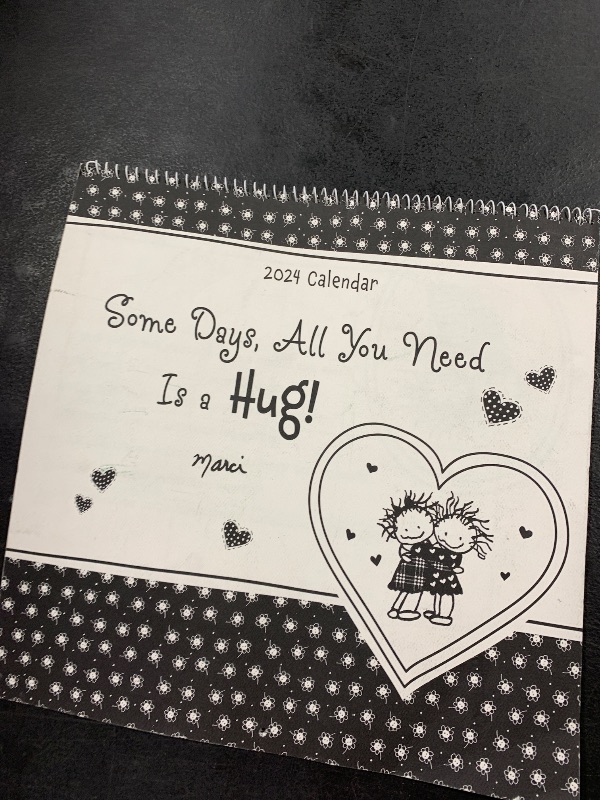 2024 Calendar
Some Days, All You Need
Is a Hug!
Marci